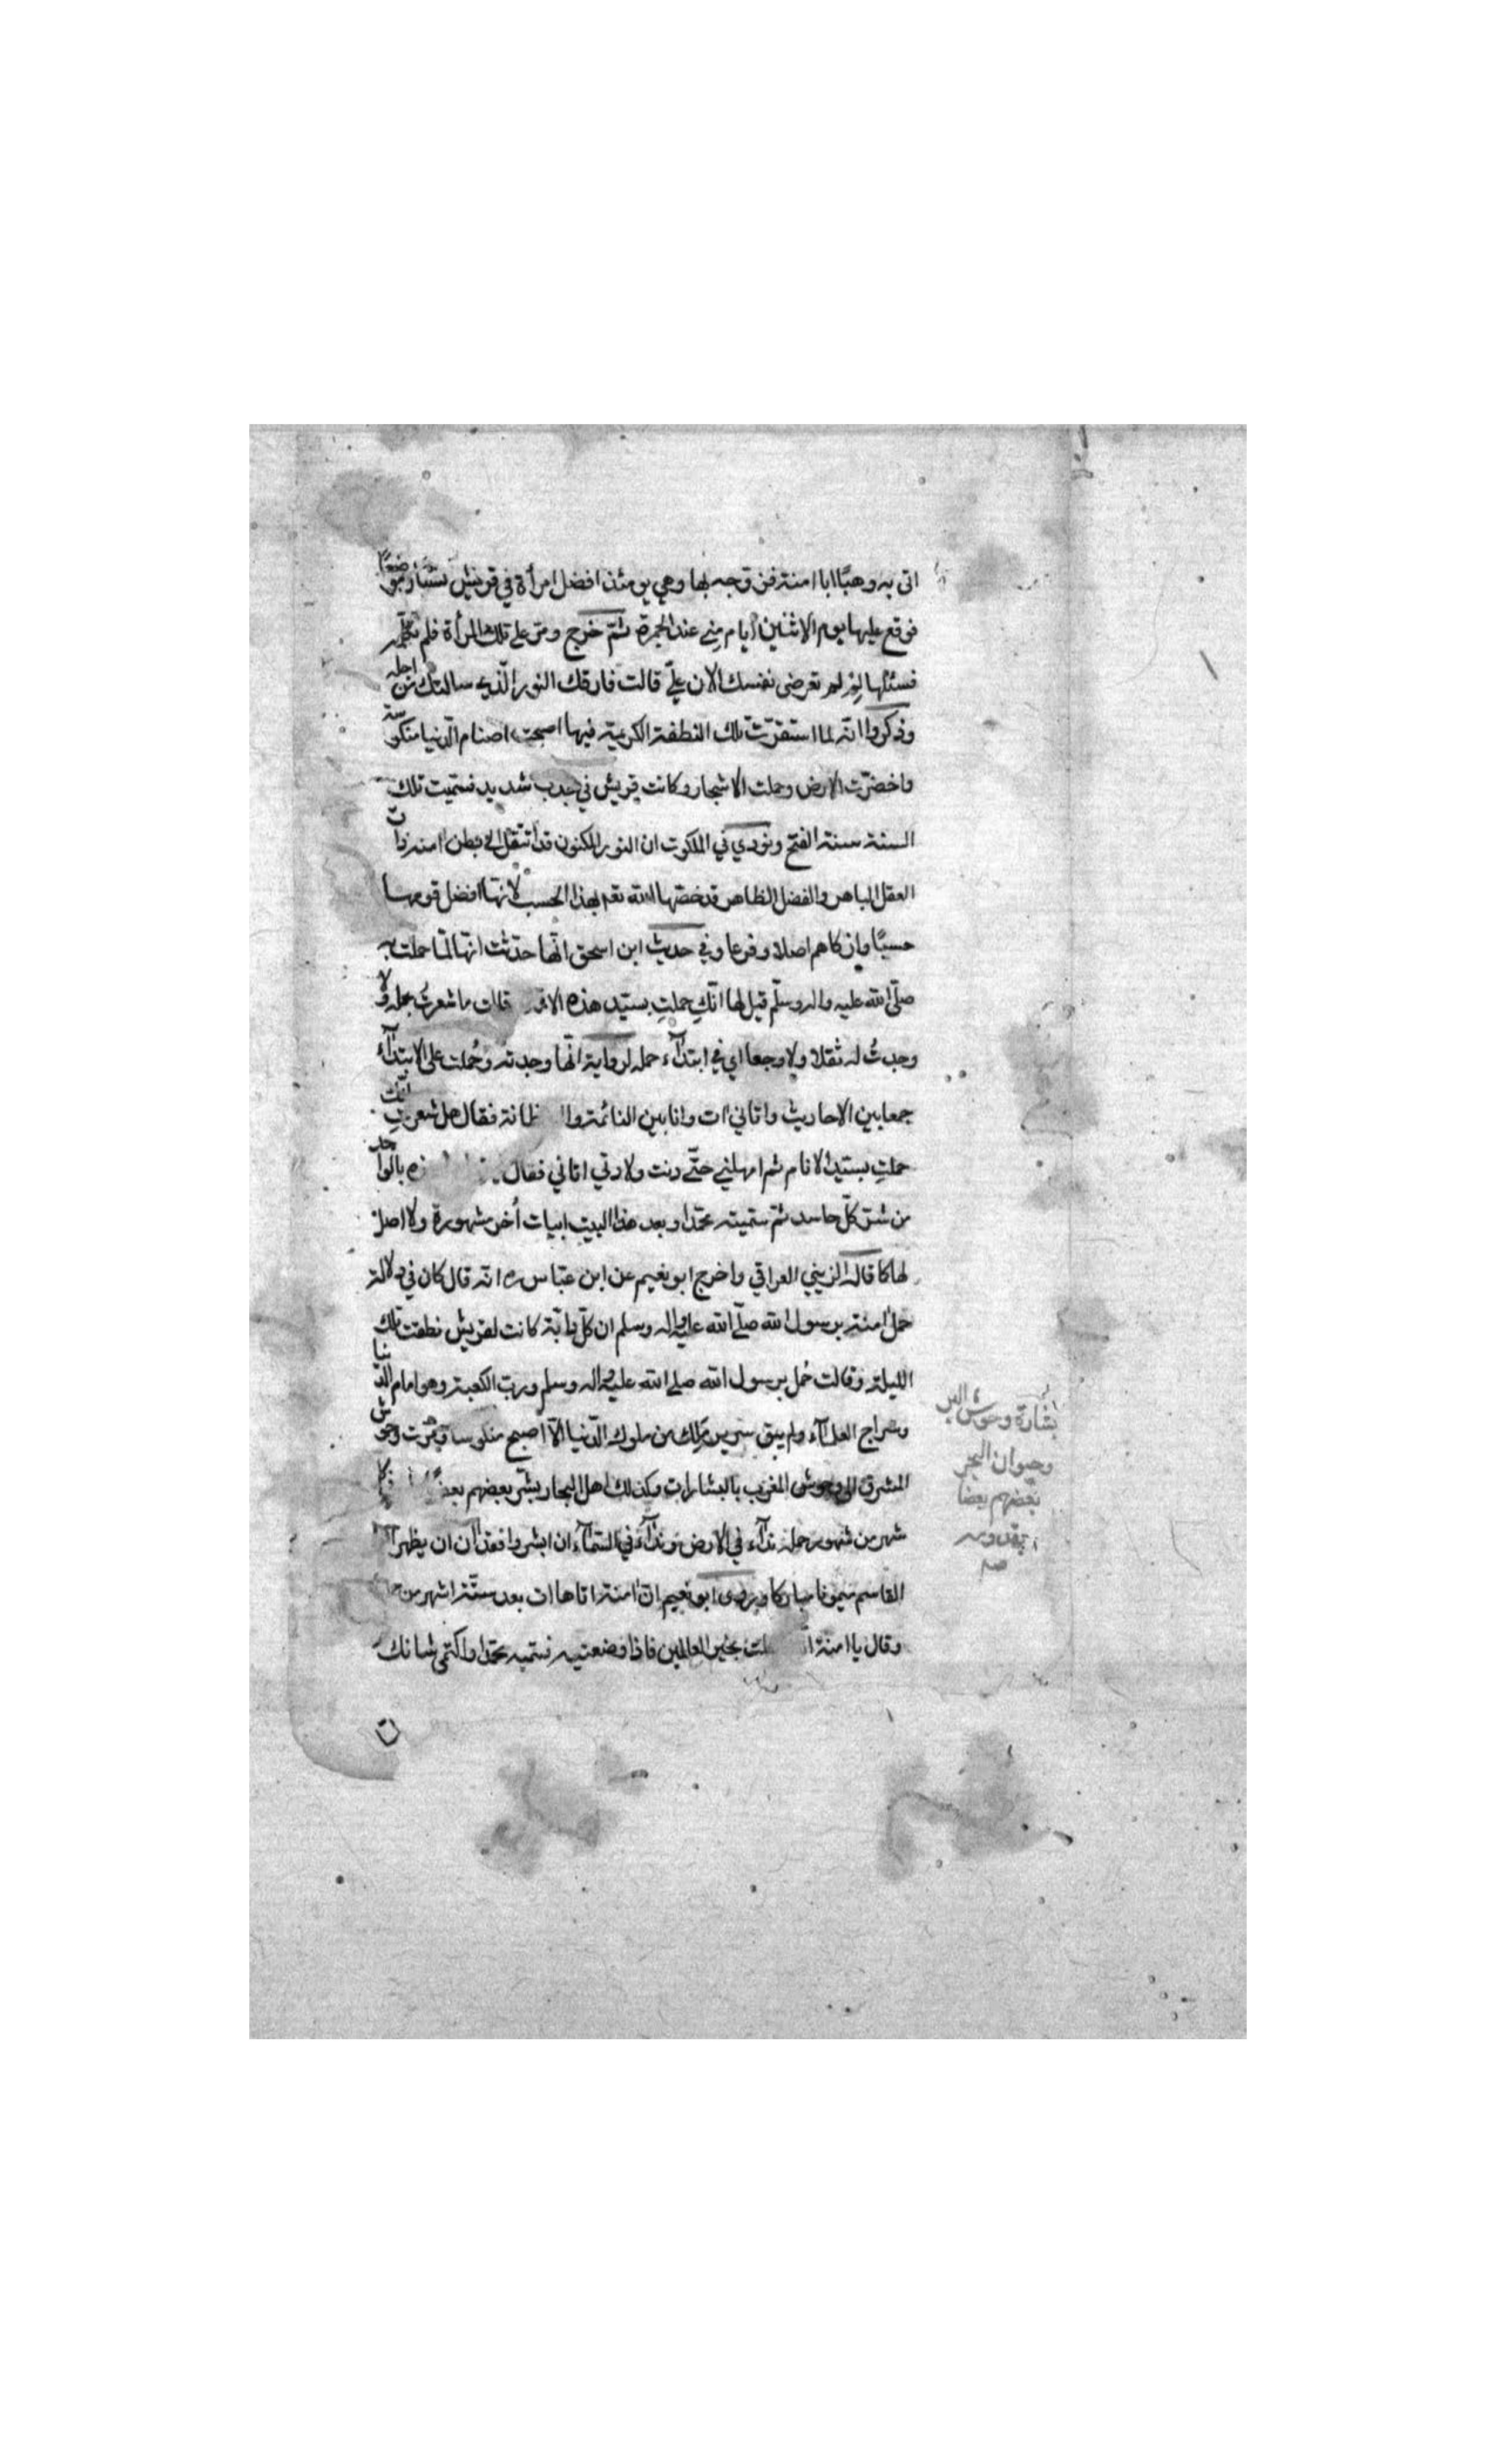 اتى به وهبًا ابا امنة فزوجه بها وهي يومئذ افضل امرأة في قريش نسبًا وموضعًا
فوقع عليها يوم الاثنين ايام منى عند الجمرة ثمّ خرج ومرّ على تلك المرأة فلم تكلّمه
فسئلها لِمَ لم تعرضى نفسك الان عليّ قالت فارقك النور الّذي سالتك من اجله
وذكروا انّه لما استقرّت تلك النطفة الكريمة فيها اصبحت اصنام الدّنيا منكوسة
واخضرّت الارض وحملت الاشجار وكانت قريش في جدب شديد فسمّيت تلك
السنة سنة الفتح ونودي في الملكوت ان النور المكنون قد انتقل الى بطن امنة ذات
العقل الباهر والفضل الظاهر قد خصّها الله تعـ بهذا الحسب لانّها افضل قومها
حسبًا وازكاهم اصلا وفرعا وفي حديث ابن اسحق انّها حدّثت انّها لمّا حملت به
صلّى الله عليه واله وسلّم قيل لها انّكِ حملتِ بسيّد هذه الامّة قالت ما شعرتُ بحمله ولا
وجدتُ له ثقلا ولا وجعا اي في ابتدآء حمله لرواية انّها وجدته وحُملت على الابتدآء
جمعا بين الاحاديث واتاني ات وانا بين النائمة واليقظانة فقال هل شعرتِ انّك
حملتِ بسيّد الانام ثم امهلني حتّى دنت ولادتي اتاني فقال بالواحد
من شرّ كلّ حاسد ثمّ سمّيته محمّدا وبعد هذا البيت ابيات اُخر مشهورة ولا اصل
لها كما قاله الزيني العراقي واخرج ابو نعيم عن ابن عبّاس رض انّه قال كان في دلالة
حمل امنة برسول الله صلّى الله عليه واله وسلم ان كلّ دابّة كانت لقريش نطقت تلك
الليلة وقالت حُمل برسول الله صلى الله عليه واله وسلم وربّ الكعبة وهو امام الدّنيا
وسراج اهلها ولم يبق سرير مَلِك من ملوك الدّنيا الّا اصبح منكوسا وفرّت وحوش
المشرق الى وحوش المغرب بالبشارات وكذلك اهل البحار يبشّر بعضهم بعضًا
شهر من شهور حمله ندآء في الارض وندآء في السّمآء ان ابشروا فقد آن ان يظهر ابا
القاسم ميمونا مباركا وروى ابو نعيم انّ امنة اتاها ات بعد ستّة اشهر من
وقال يا امنة بخير العالمين فاذا وضعتيه فسمّيه محمّدا واكتمي شانك
بشارة وحوش البر
وحيوان البحر
بعضهم بعضا
بقدومه
صم